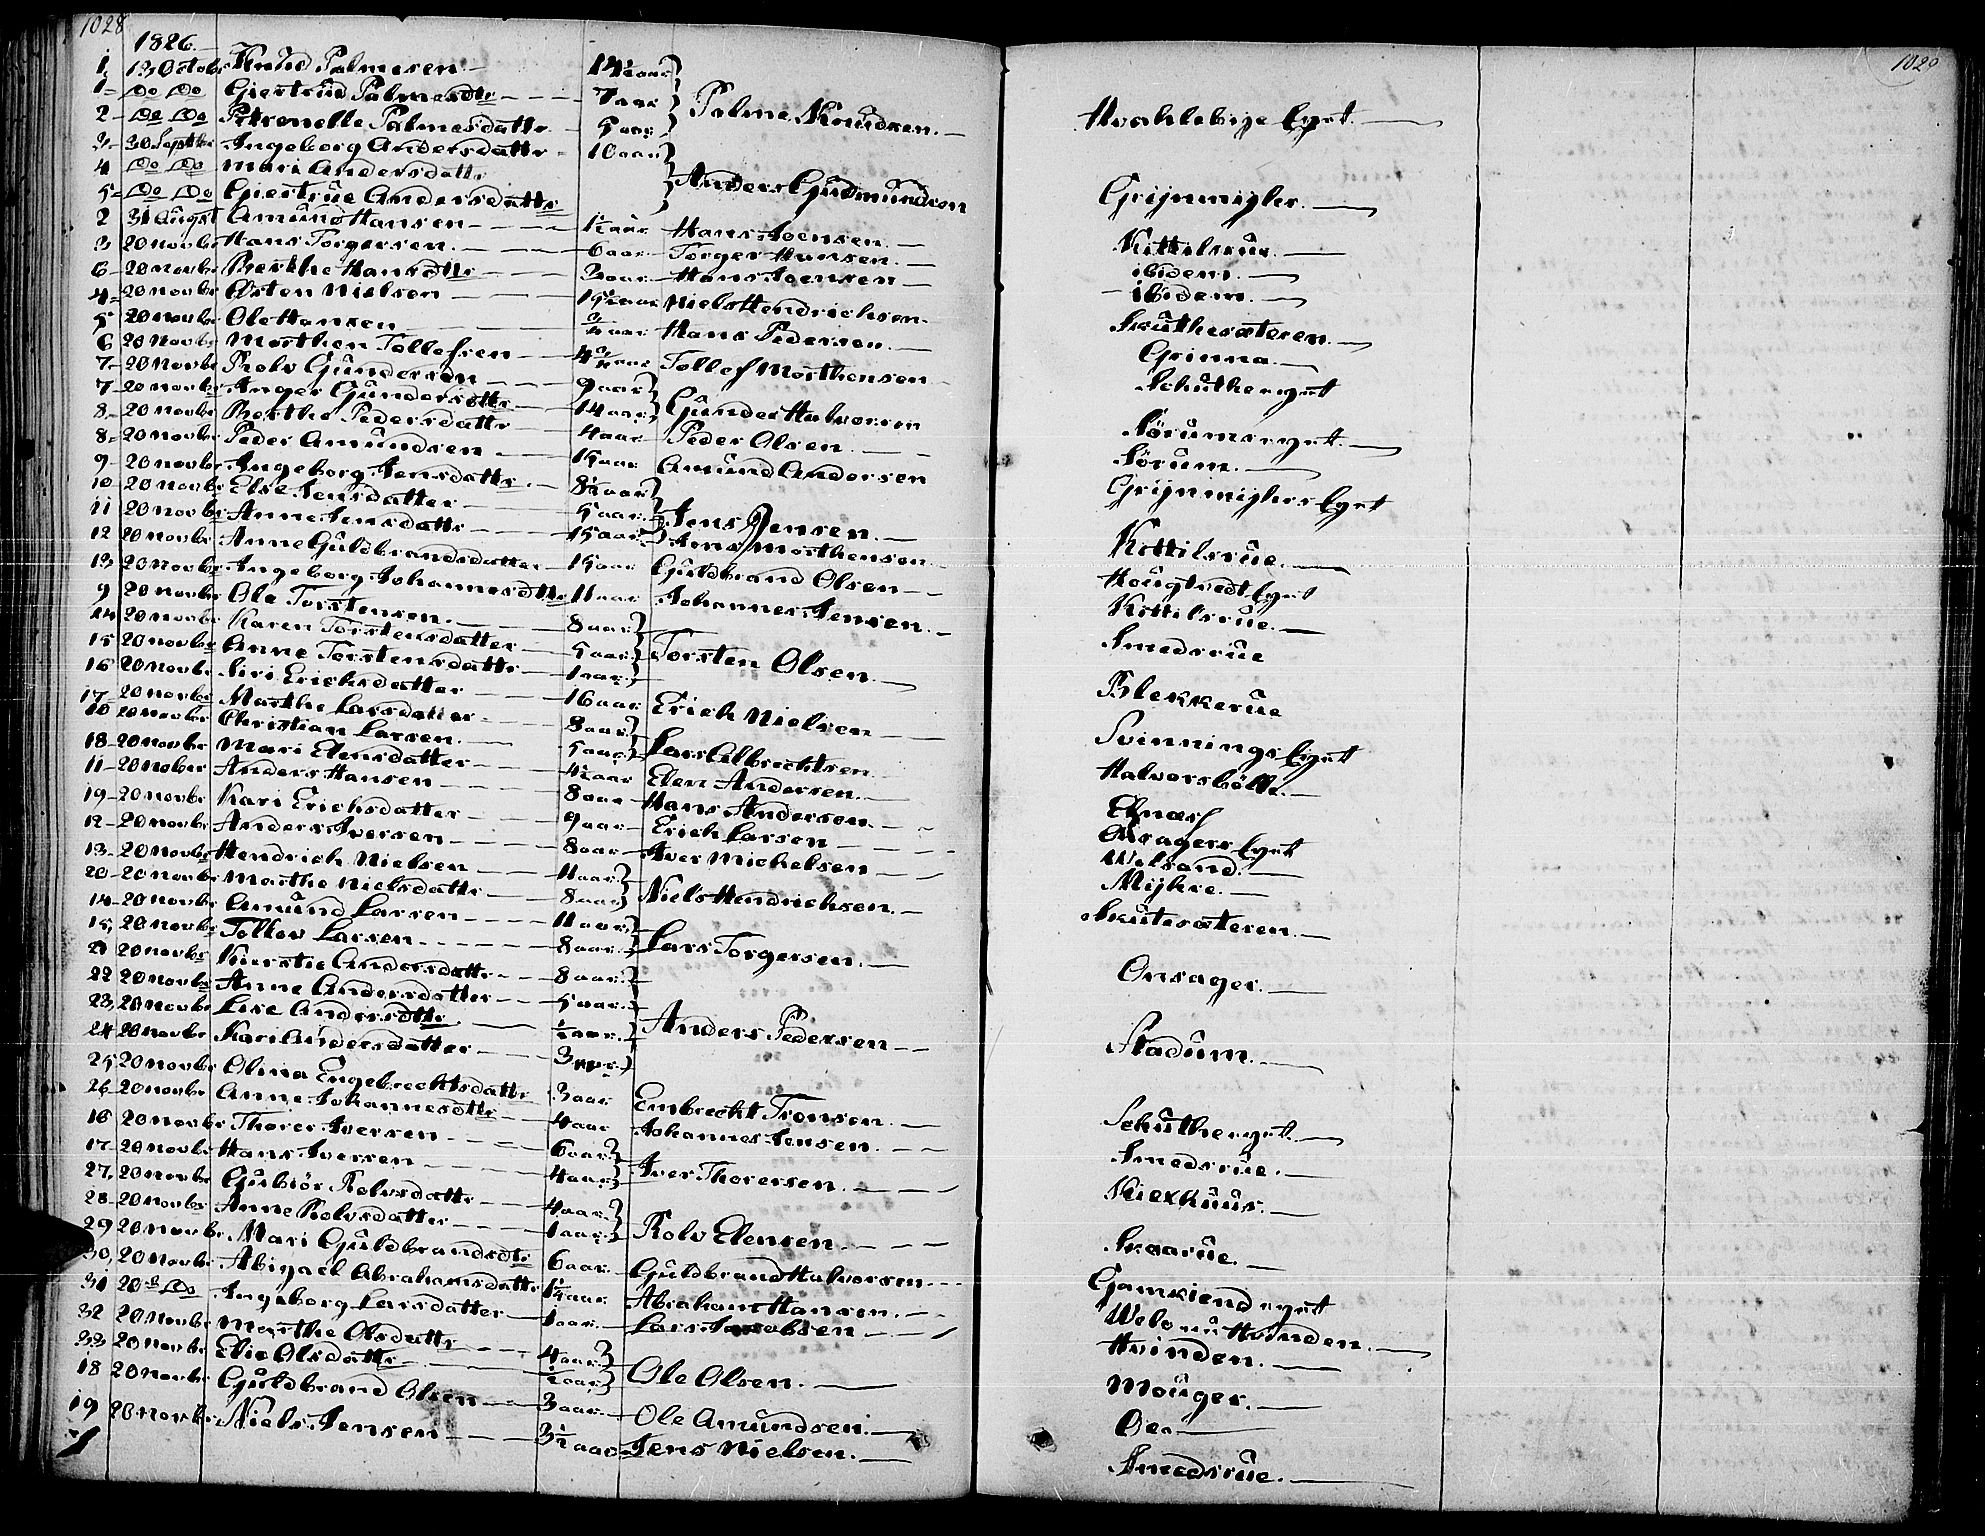 1028
1826.
1, 13 Octobr Knud Palmesen 14½ aar
1= Do Do Giertrud Palmesdtr 7 aar Palme Knudsen.
2- Do Do Petronelle Palmesdattr 5 aar
3- 30 Septbr Ingeborg Andersdattr 10 aar
4 Do Do Mari Andersdattr
5= Do Do Giertrue Andersdattr Anders Gudmundsen
2 31 August Amund Hansen 1½ aar Hans Joensen.
3 20 novbr Hans Torgersen. 6 aar Torger Hansen.
6- 20 novbr Berthe Hansdttr 3 aar Hans Joensen
4= 20 novbr Østen Nielsen aar Niels Hendrichsen
5 20 novbr Ole Hansen aar Hans Pedersen
6 20 Novbr Morthen Tollefsen aar Tollef Morthensen
7- 20 Novbr Rolv Gundersen 9 aar
7- 20 novbr Inger Gundersdttr 14 aar Gunder Halvorsen
8- 20 novbr Berthe Pedersdattr 4 aar Peder Olsen.
8= 20 novbr Peder Amundsen aar Amund Andersen
9- 20 novbr Ingeborg Jensdattr. 8½ aar
10- 20 Novbr Else Jensdatter 5 aar Jens Jensen.
11 20 Novbr Anne Jensdattr 15 aar Jens Morthensen
12 20 novbr Anne Guldbrandsdatter aar Guldbrand Olsen
13 20 Novbr Ingeborg Johannesdttr 11 aar Johannes Jensen.
9 20 novbr Ole Torstensen. 8 aar
14 20 novbr Karen Torstensdatter 5 aar Torsten Olsen.
15 20 novbr Anne Torstensdattr 1 aar
16 20 Novbr Siri Erichsdatter 16 aar Erich Nielsen
17- 20 novbr Marthe Larsdatter 8 aar
10 20 novbr Christian Larsen. 5 aar Lars Albrechtsen
18- 20 novbr Mari Elensdatter 4½ aar Elen Andersen.
11- 20 Nober Anders Hansen 8 aar Hans Andersen
19- 20 novbr Kari Erichsdatter 9 aar Erich Larsen
12- 20 novbr Anders Iversen 8 aar Iver Michelsen
13- 20 Novbr Hendrich Nielsen 11 aar
20- 20 novbr Marthe Nielsdattr 8 aar Niels Hendrichsen.
14- 20 novbr Amund Larsen 11 aar
15, 20 novbr Tollev Larsen 8 aar Lars Torgersen.
21 20 novbr Kierstie Andersdattr 8 aar
22 20 novbr Anne Andersdatter 5 aar
23, 20 novbr Lise Andersdttr ½ aar Anders Pedersen
24 20 novbr Kari Andersdatter 3 aar
25 20 novbr Olina Engebrechtsdattr 3 aar Embrecht Tronsen.
26- 20 novbr Anne Johannesdttr 4 aar Johannes Jensen.
16 20 novbr Thorer Iversen 6 aar
17- 20 novbr Hans Iversen 4 aar Iver Thorersen.
27, 20 novbr Gubiör Rolvsdattr 4 aar
28- 20 novbr Anne Rolvsdatter 1 aar Rolv Elensen
29 20 novbr Mari Guldbrandsdtr 6 aar Guldbrand Halvorsen
30, 20 novbr Abigael Abrahamsdattr 1½ aar Abraham Hansen.
31 20de Do Ingeborg Larsdatter 1 aar Lars Jacobsen
32 20 Novbr Marthe Olsdattr 4 aar
33 20 novbr Elie Olsdattr ½ aar Ole Olsen.
18 20 novbr Guldbrand Olsen 3 aar Ole Amundsen.
19 20 novbr Niels Jensen 3½ aar Jens Nielsen.
Hvahlebyeeyet.
Grijnmigler.
Kittilsrue.
ibidem.
ibidem.
Skuthesæteren.
Grinna.
Schutheeyet
Sörumseyet.
Sörum.
Grijnmiglerseyet
Kittilsrue.
Hougtvedteyet
Kittilsrue.
Smedsrue
Blekkerue
Svinningseyet
Halvorsbölle.
Elnæs
Onsagerseyet
Velsand.
Mijhre.
Skutesæteren.
Onsager.
Stadum.
Schutheeyet.
Smedsrue.
Kiexhuus.
Skaarue.
Gamkiendeyet
Hvinden.
Hvinden.
Mouger.
Oen
Smedsrue.